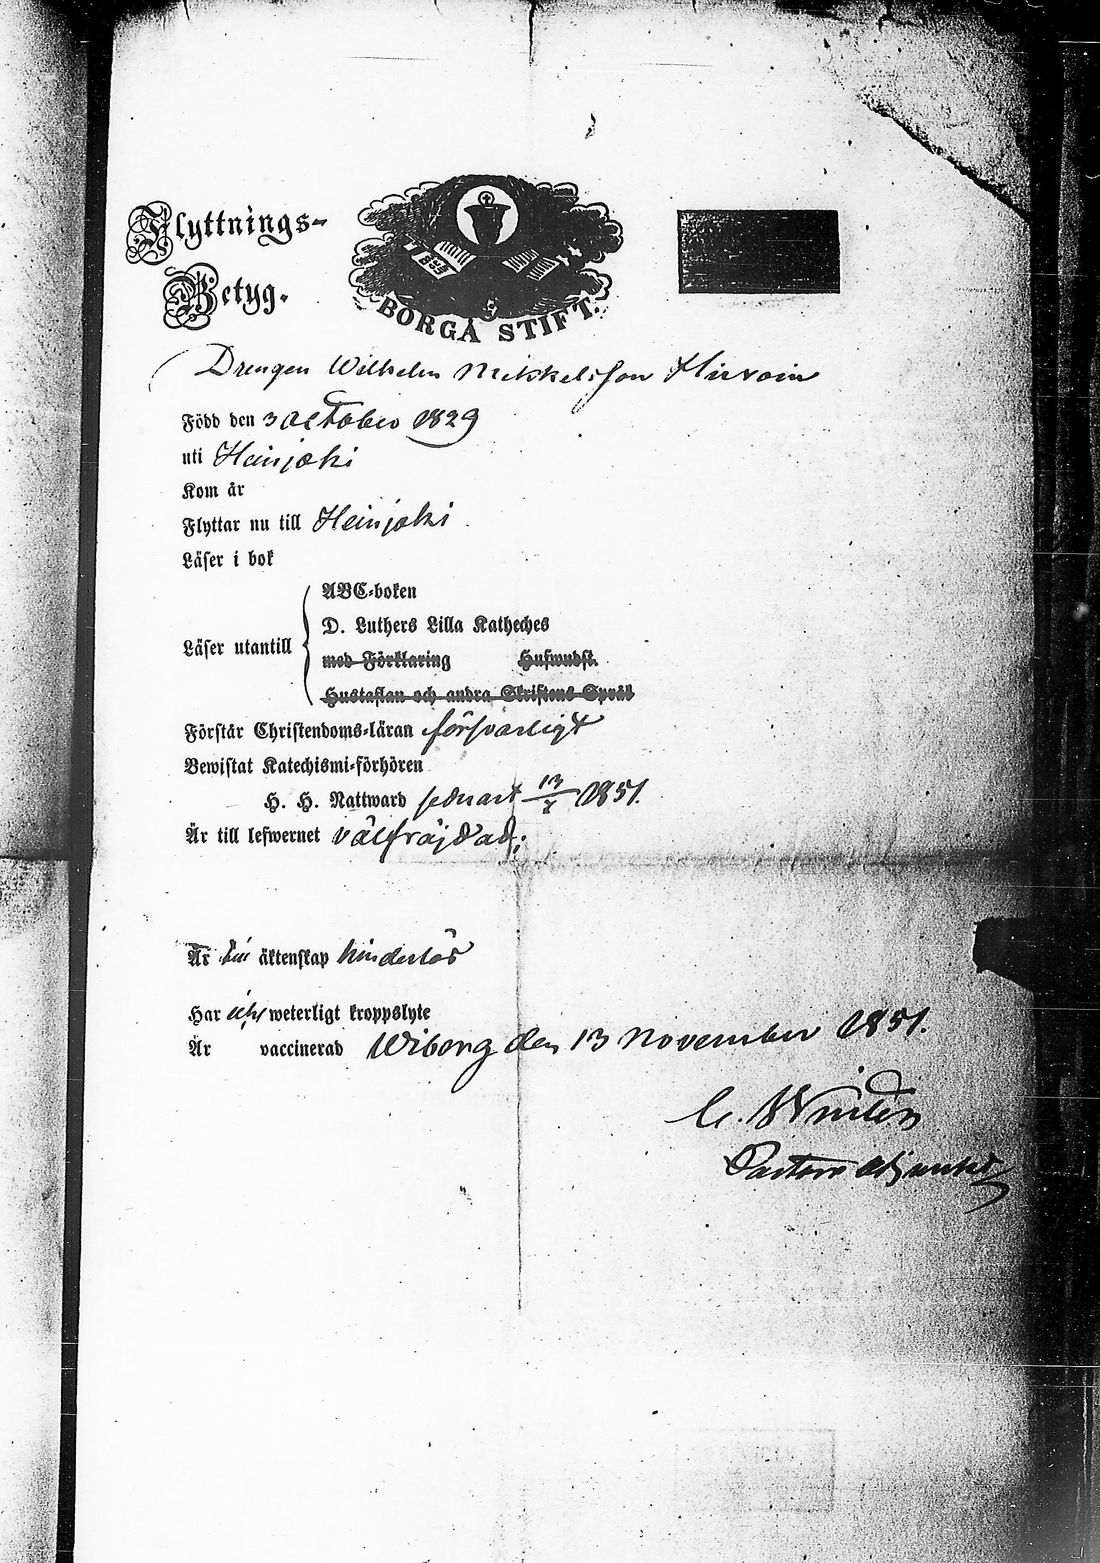 Flyttnings-
Betyg.
BORGÅ STIFT.
Drengen Wilhelm Mikkelsson Hirvoin
Född den 3 October 1829
uti Heinjoki
Kom år
Flyttar nu till Heinjoki
Läser i bok
ABC-boken
D. Luthers Lilla Katheches
Läser utantill
med Förklaring Huswudst.
Hustaflan och andra Skriftens Språk
Förstår Christendoms-läran försvarligt
Bewistat Katechismi-förhören
H. H. Nattward sednast 13/7 1851.
Är till lefwernet välfräjdad;
Är till äktenskap hinderlös
Har icke weterligt kroppslyte
Är vaccinerad Wiborg den 13 November 1851.
Pastors Adjunkt